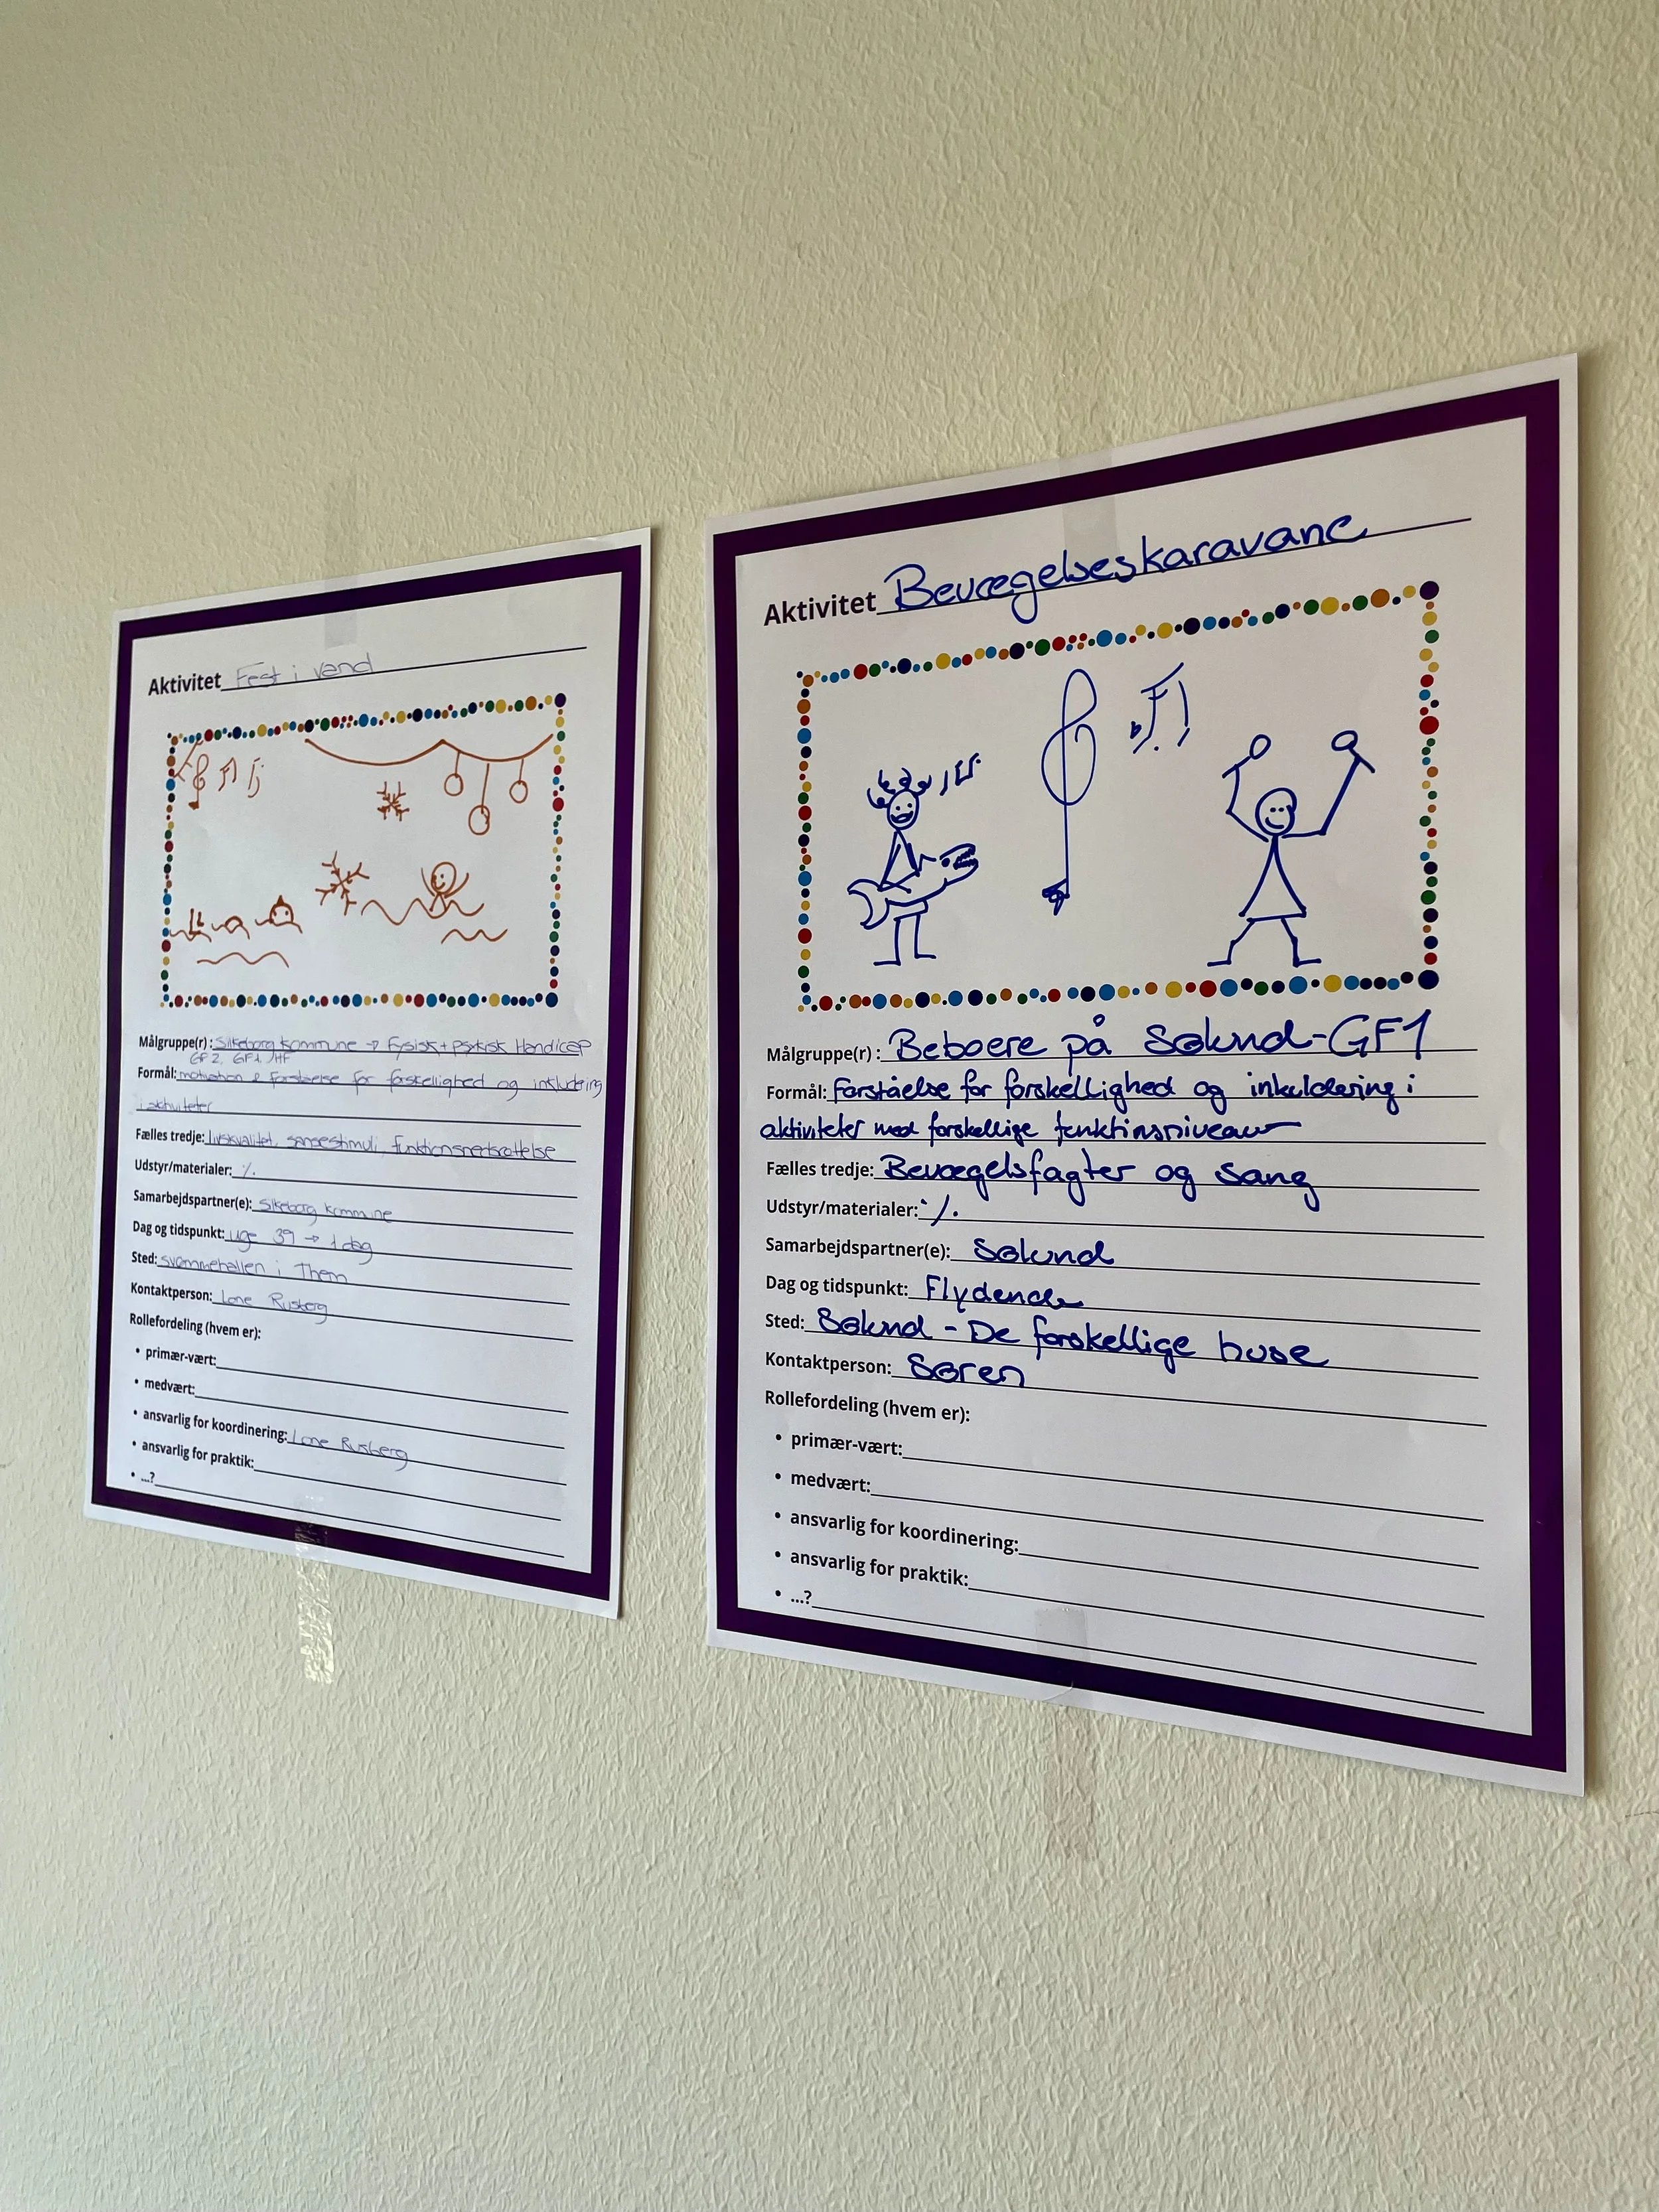 Aktivitet Fest i vand
Målgruppe(r): Silkeborg kommune → Fysisk + psykisk Handicap
GF2, GF1, HF
Formål: motivation & forståelse for forskellighed og inkludering
i aktiviteter
Fælles tredje: livskvalitet, sansestimuli, funktionsnedsættelse
Udstyr/materialer: ./.
Samarbejdspartner(e): Silkeborg kommune
Dag og tidspunkt: uge 39 → 1 dag
Sted: svømmehallen i Them
Kontaktperson: Lone Rusberg
Rollefordeling (hvem er):
• primær-vært:
• medvært:
• ansvarlig for koordinering: Lone Rusberg
• ansvarlig for praktik:
• ...?
Aktivitet Bevægelseskaravane
Målgruppe(r): Beboere på Sølund-GF1
Formål: Forståelse for forskellighed og inkuldering i
aktiviteter med forskellige funktinsniveauer
Fælles tredje: Bevægelsfagter og sang
Udstyr/materialer: ./.
Samarbejdspartner(e): Sølund
Dag og tidspunkt: Flydende
Sted: Sølund - De forskellige huse
Kontaktperson: Søren
Rollefordeling (hvem er):
• primær-vært:
• medvært:
• ansvarlig for koordinering:
• ansvarlig for praktik:
• ...?